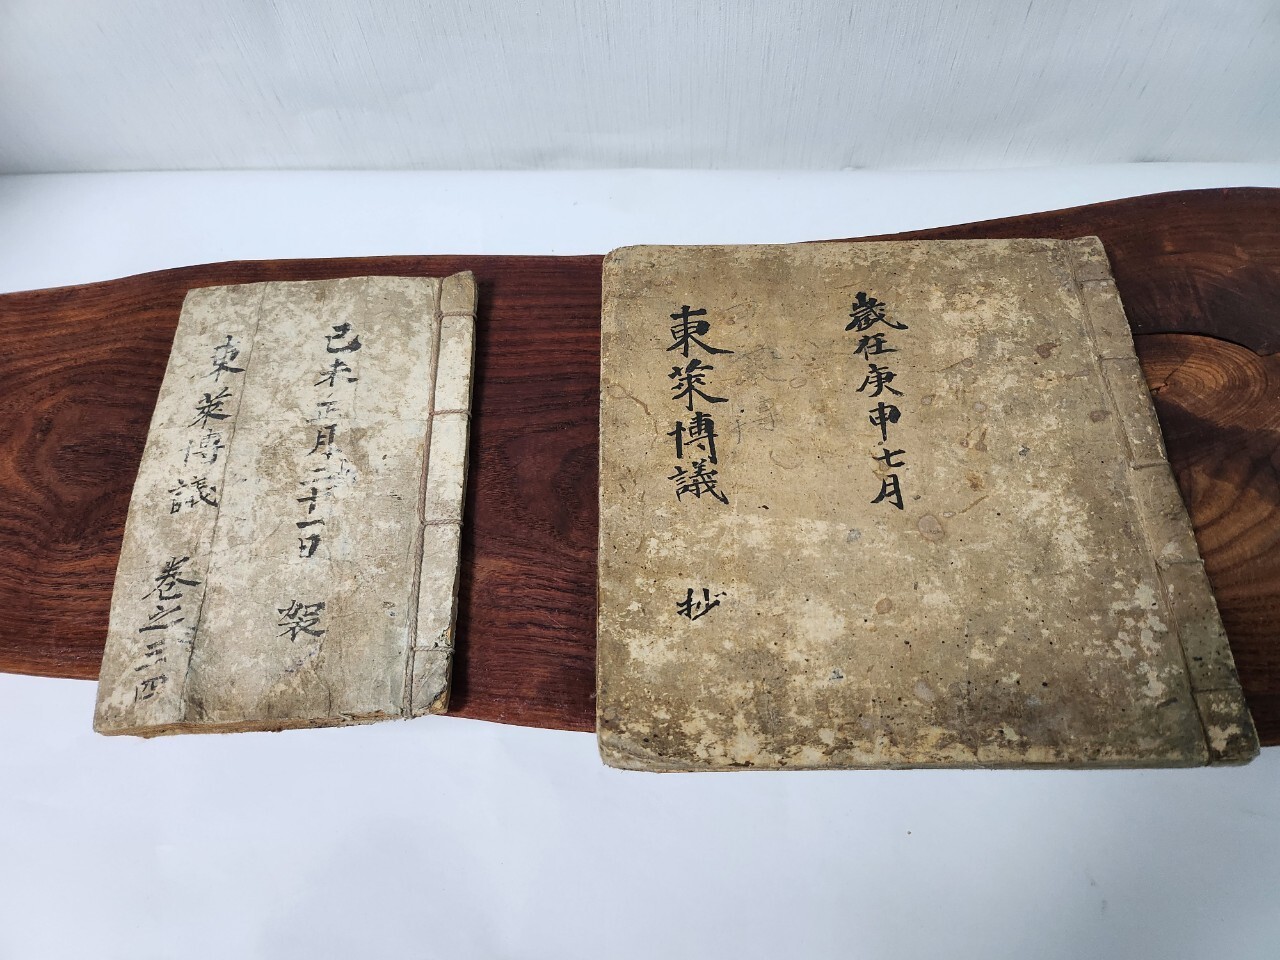 己未正月二十一日 袈
東萊博議 卷之三四
歲在庚申七月
東萊博議 抄